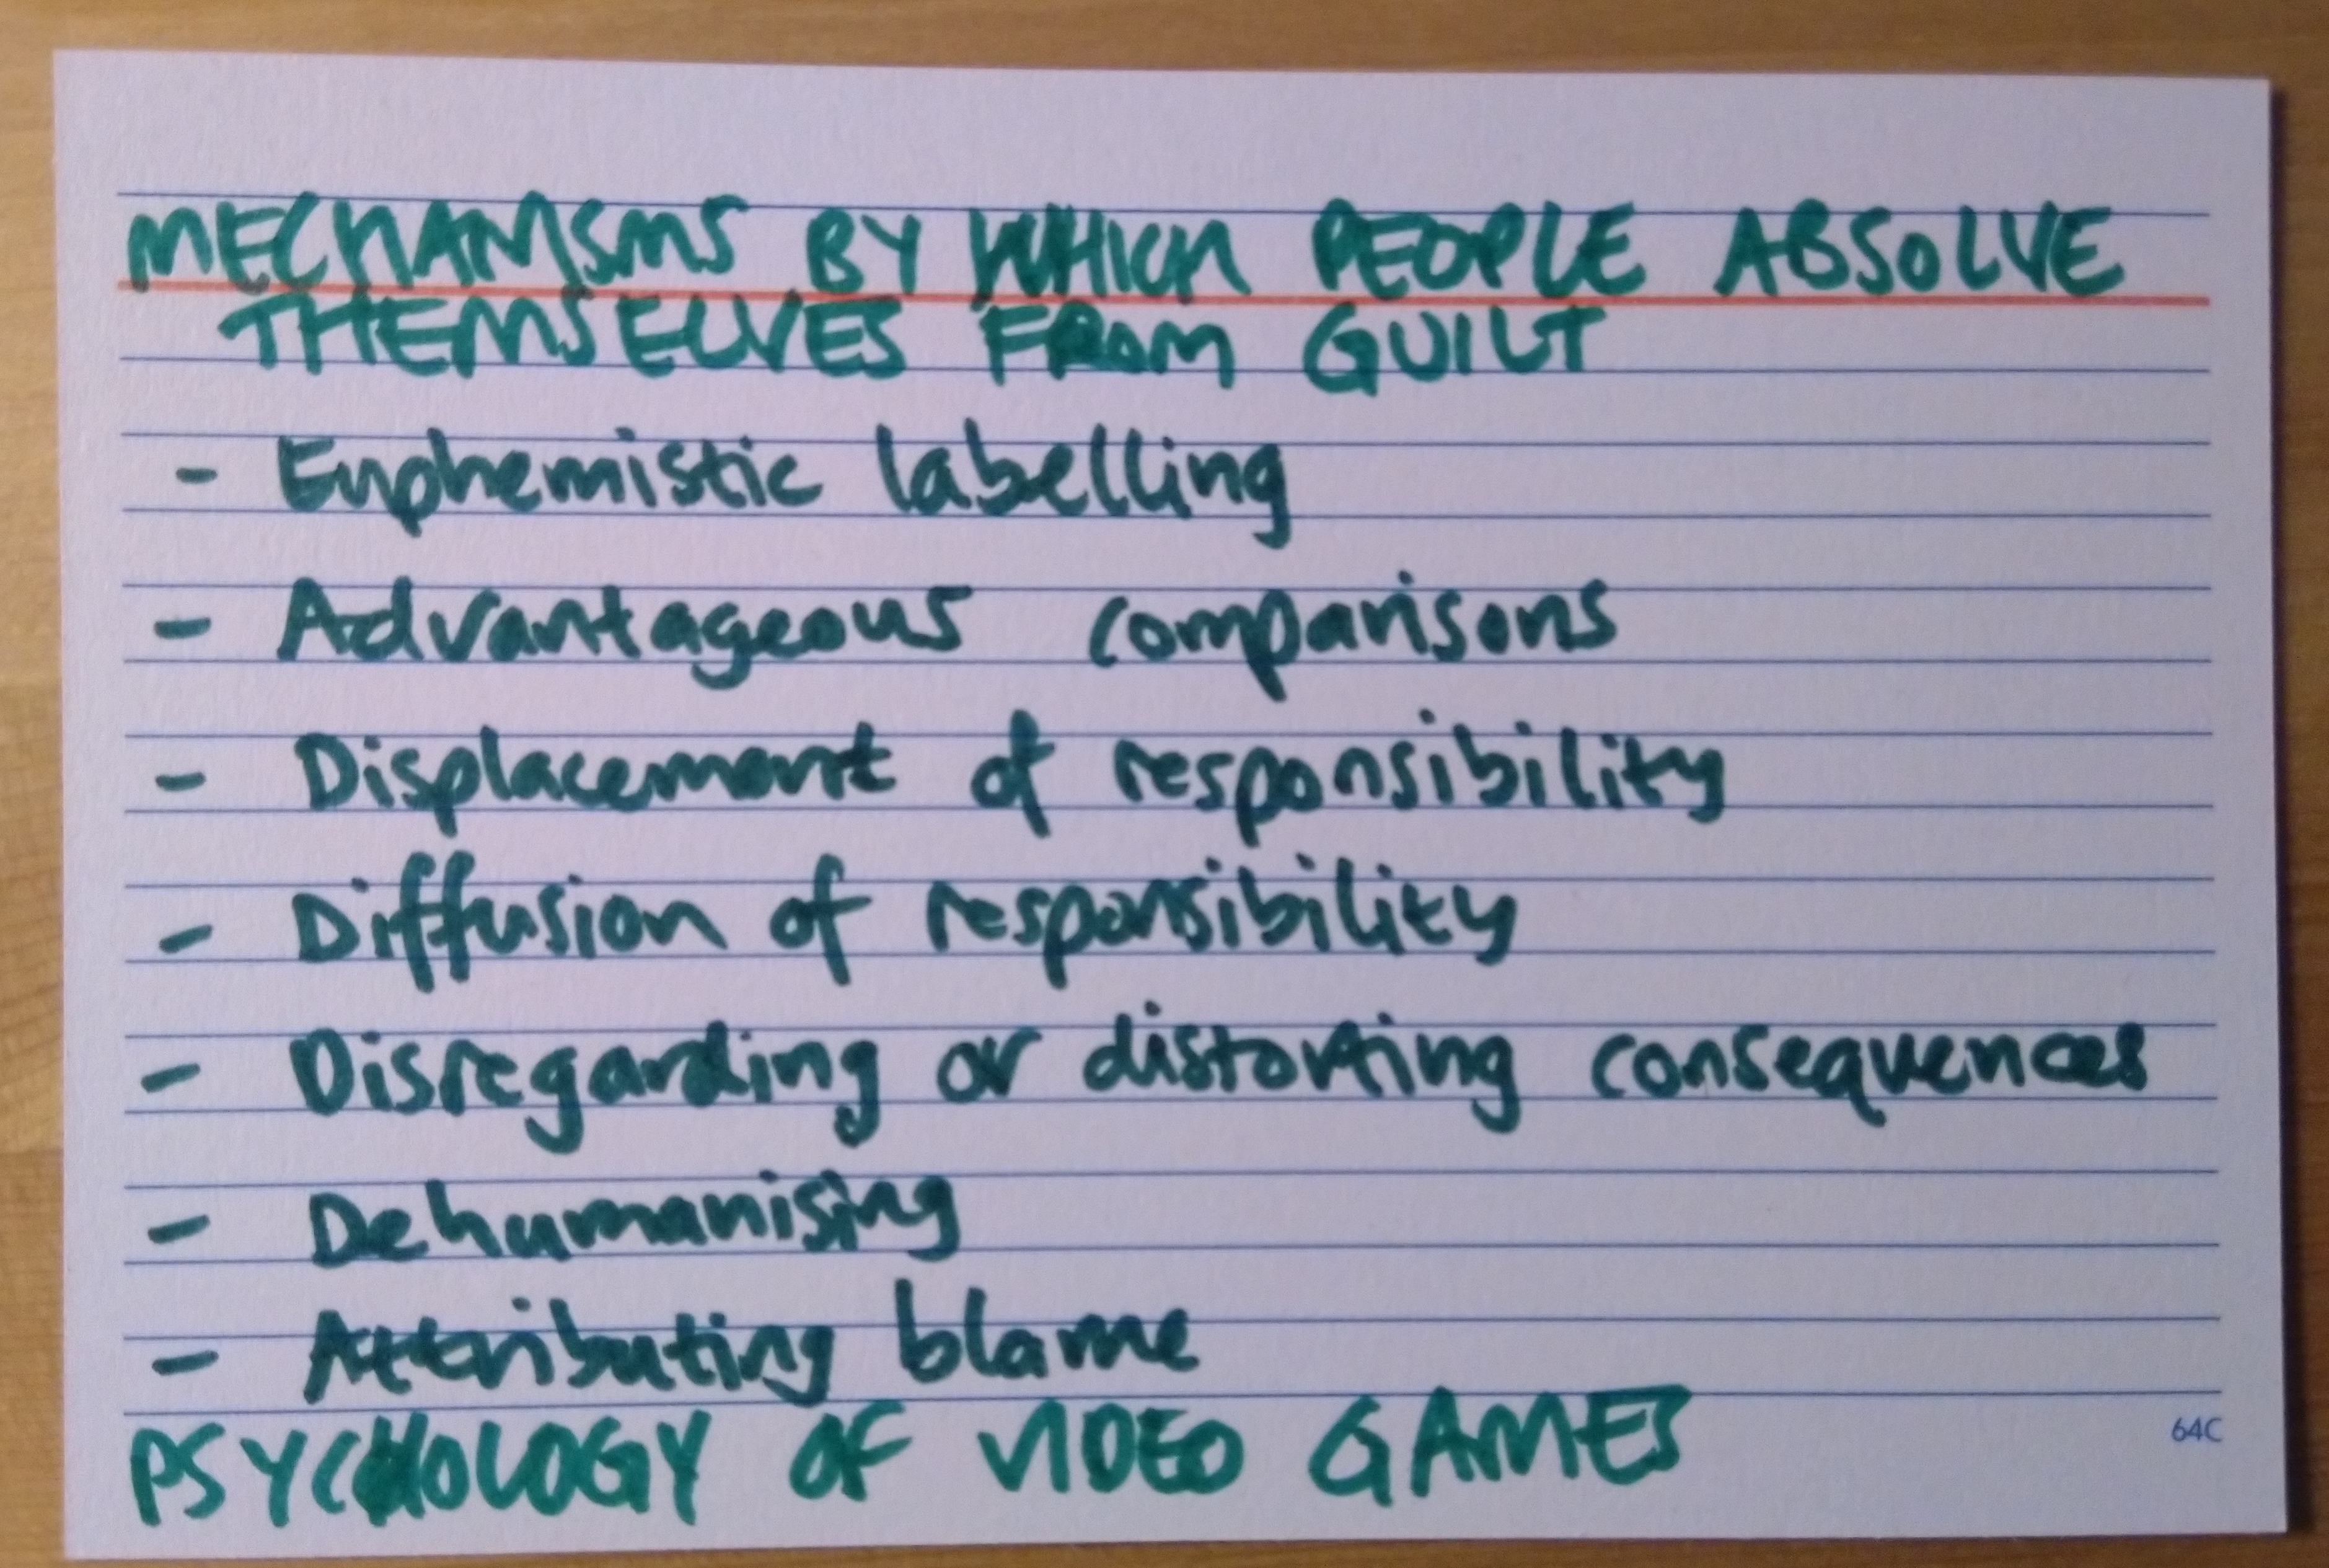 MECHANISMS BY WHICH PEOPLE ABSOLVE
THEMSELVES FROM GUILT
- Euphemistic labelling
- Advantageous comparisons
- Displacement of responsibility
- Diffusion of responsibility
- Disregarding or distorting consequences
- Dehumanising
- Attributing blame
PSYCHOLOGY OF VIDEO GAMES
64C